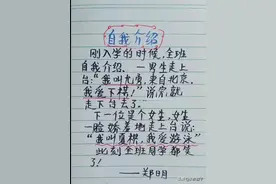 自我介绍
刚入学的时候,全班
自我介绍。一男生走上
台:“我叫尤勇,来自北京,
我爱下棋!”说完就
走下台去了。
下一位是个女生,女生
一脸娇羞地走上台说:
“我叫夏棋,我爱游泳”
此刻全班同学都笑
了!
——郑明